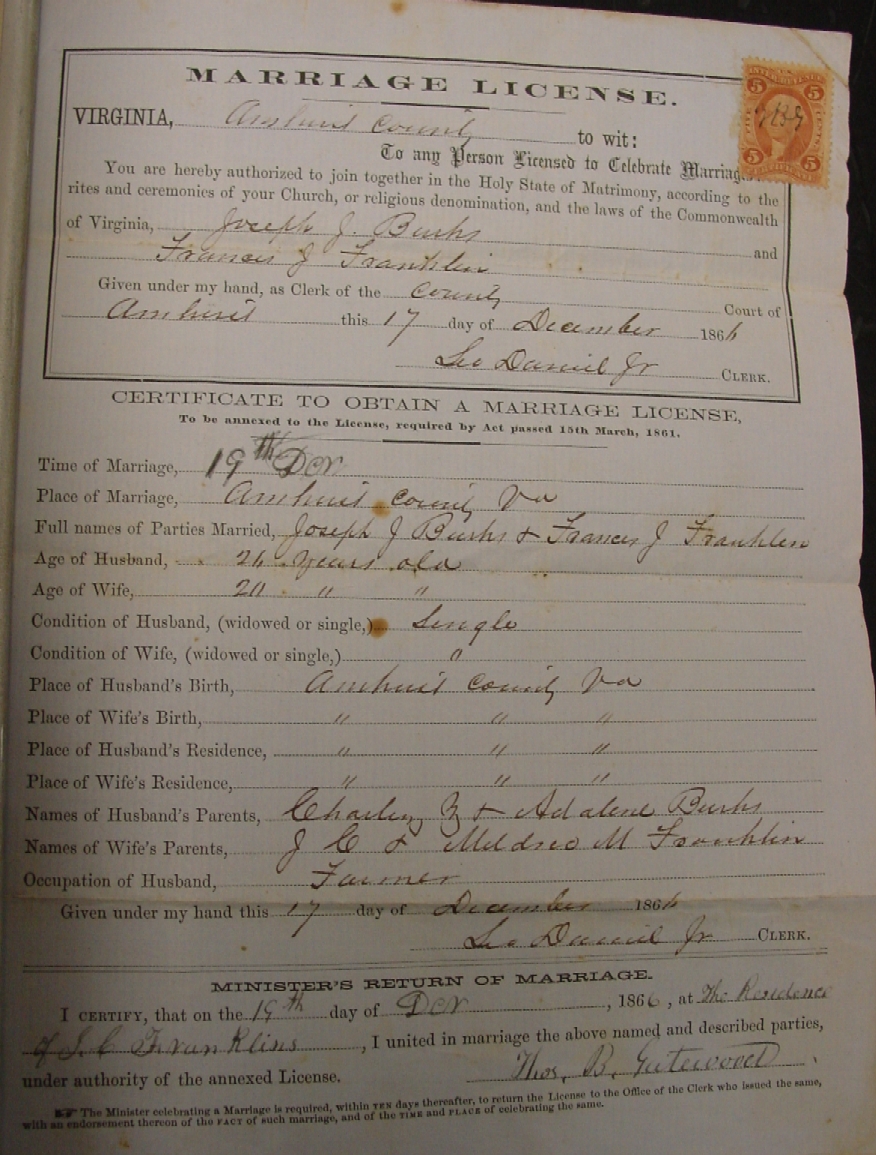 MARRIAGE LICENSE.
VIRGINIA, Amherst County to wit:
To any Person Licensed to Celebrate
You are hereby authorized to join together in the Holy State of Matrimony, according to the
rites and ceremonies of your Church, or religious denomination, and the laws of the Commonwealth
of Virginia, Joseph J. Burks and
Francis J Franklin
Given under my hand, as Clerk of the County Court of
Amherst this 17 day of December 1866
Daniel Jr CLERK.
CERTIFICATE TO OBTAIN A MARRIAGE LICENSE,
To be annexed to the License, required by Act passed 15th March, 1861.
Time of Marriage, 19th Dcr
Place of Marriage, Amherst County Va
Full names of Parties Married, Joseph J Burks & Francis J Franklin
Age of Husband, years old
Age of Wife, " "
Condition of Husband, (widowed or single,) Single
Condition of Wife, (widowed or single,) "
Place of Husband's Birth, Amherst County Va
Place of Wife's Birth, " " "
Place of Husband's Residence, " " "
Place of Wife's Residence, " " "
Names of Husband's Parents, & Adalene Burks
Names of Wife's Parents, J C & Mildred M Franklin
Occupation of Husband, Farmer
Given under my hand this 17 day of December 1866
Daniel Jr CLERK.
MINISTER'S RETURN OF MARRIAGE.
I CERTIFY, that on the 19th day of Dcr, 1866, at The Residence
of J. C Franklins, I united in marriage the above named and described parties,
under authority of the annexed License. Thos. B. Gutewood
The Minister celebrating a Marriage is required, within TEN days thereafter, to return the License to the Office of the Clerk who issued the same,
with an endorsement thereon of the FACT of such marriage, and of the TIME and PLACE of celebrating the same.